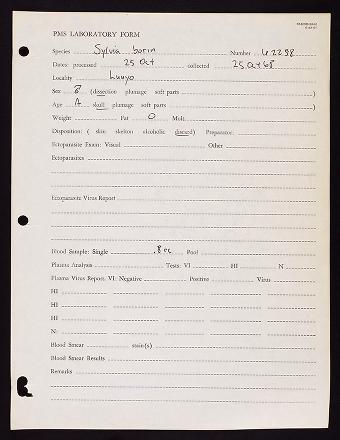 PMS LABORATORY FORM
Species Sylvia borin Number
Dates: processed 25 Oct collected 25 Oct 68
Locality Lunyo
Sex 8 (dissection plumage soft parts )
Age A skull plumage soft parts )
Weight Fat O Molt
Disposition: ( skin skelton alcoholic discard) Preparator:
Ectoparasite Exam: Viscal Other
Ectoparasites
Ectoparasite Virus Report
Blood Sample: Single .8 cc Pool
Plasma Analysis Tests: VI HI N
Plasma Virus Report, VI: Negative Positive Virus
HI
HI
HI
N:
Blood Smear stain(s)
Blood Smear Results
Remarks